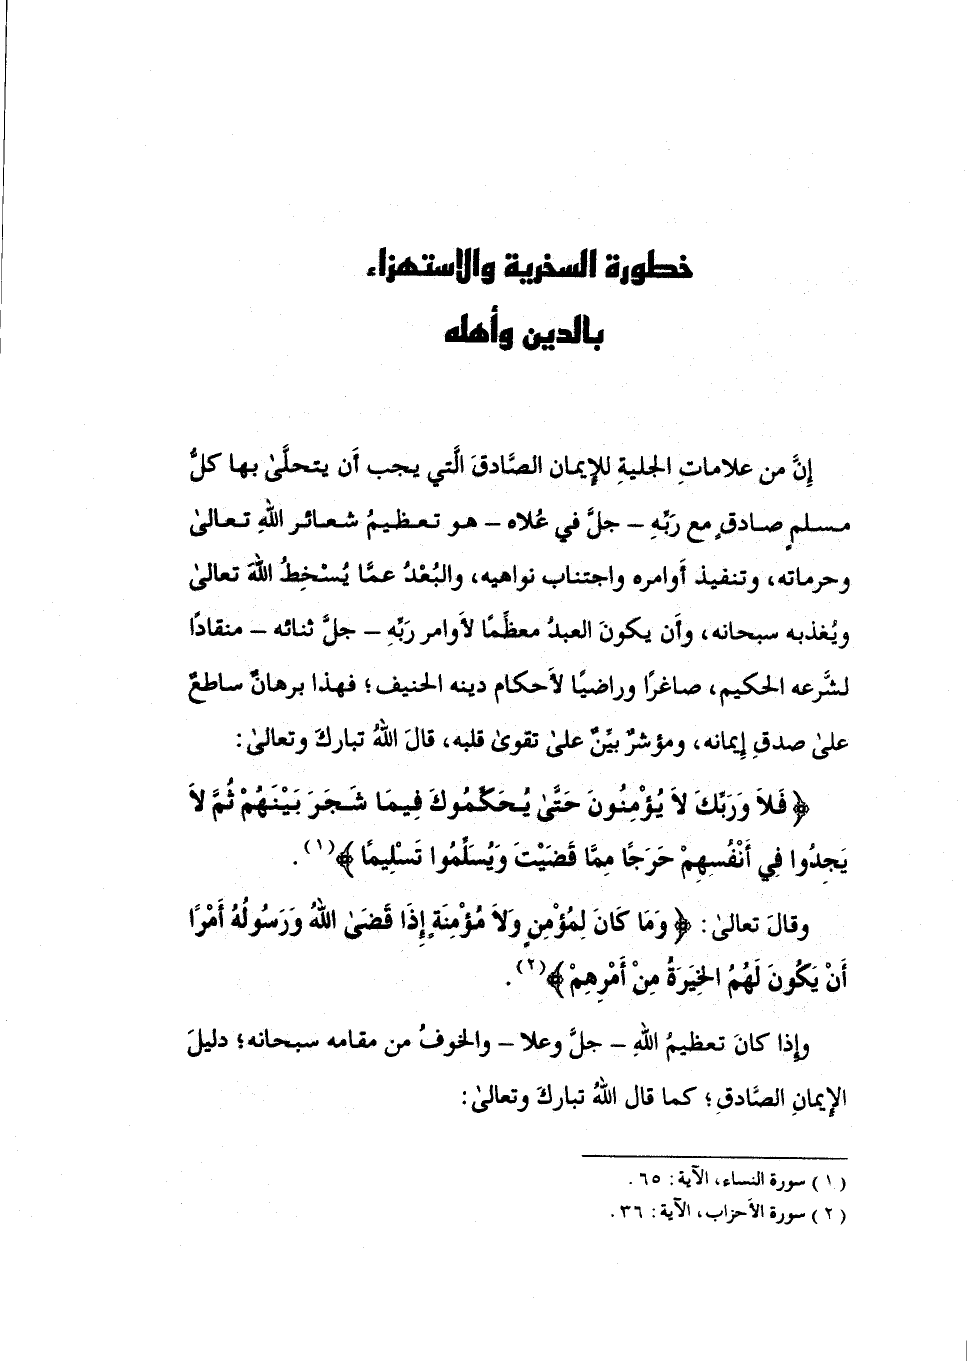 خطورة السخرية والاستهزاء
بالدين وأهله
إِنَّ من علاماتِ الجليةِ للإِيمان الصَّادقَ الَّتي يجب أَن يتحلَّىٰ بها كلُّ
مسلمٍ صادقٍ مع رَبِّهِ – جلَّ في عُلاه – هو تعظيمُ شعائر اللهِ تعالىٰ
وحرماته، وتنفيذ أَوامره واجتناب نواهيه، والبُعْدُ عمَّا يُسْخِطُ اللهَ تعالىٰ
ويُغذبه سبحانه، وأَن يكونَ العبدُ معظِّمًا لأَوامر رَبِّهِ – جلَّ ثنائه – منقادًا
لشَّرعه الحكيم، صاغرًا وراضيًا لأَحكام دينه الحنيف؛ فهذا برهانٌ ساطعٌ
علىٰ صدقِ إِيمانه، ومؤشرٌ بيِّنٌ علىٰ تقوىٰ قلبه، قالَ اللهُ تباركَ وتعالىٰ:
﴿فَلاَ وَرَبِّكَ لاَ يُؤْمِنُونَ حَتَّىٰ يُحَكِّمُوكَ فِيمَا شَجَرَ بَيْنَهُمْ ثُمَّ لاَ
يَجِدُوا فِي أَنْفُسِهِمْ حَرَجًا مِمَّا قَضَيْتَ وَيُسَلِّمُوا تَسْلِيمًا﴾(١).
وقالَ تعالىٰ: ﴿وَمَا كَانَ لِمُؤْمِنٍ وَلاَ مُؤْمِنَةٍ إِذَا قَضَىٰ اللهُ وَرَسُولُهُ أَمْرًا
أَنْ يَكُونَ لَهُمُ الخِيَرَةُ مِنْ أَمْرِهِمْ﴾(٢).
وإِذا كانَ تعظيمُ اللهِ – جلَّ وعلا – والخوفُ من مقامه سبحانه؛ دليلَ
الإِيمانِ الصَّادقِ؛ كما قال اللهُ تباركَ وتعالىٰ:
(١) سورة النساء، الآية: ٦٥.
(٢) سورة الأَحزاب، الآية: ٣٦.